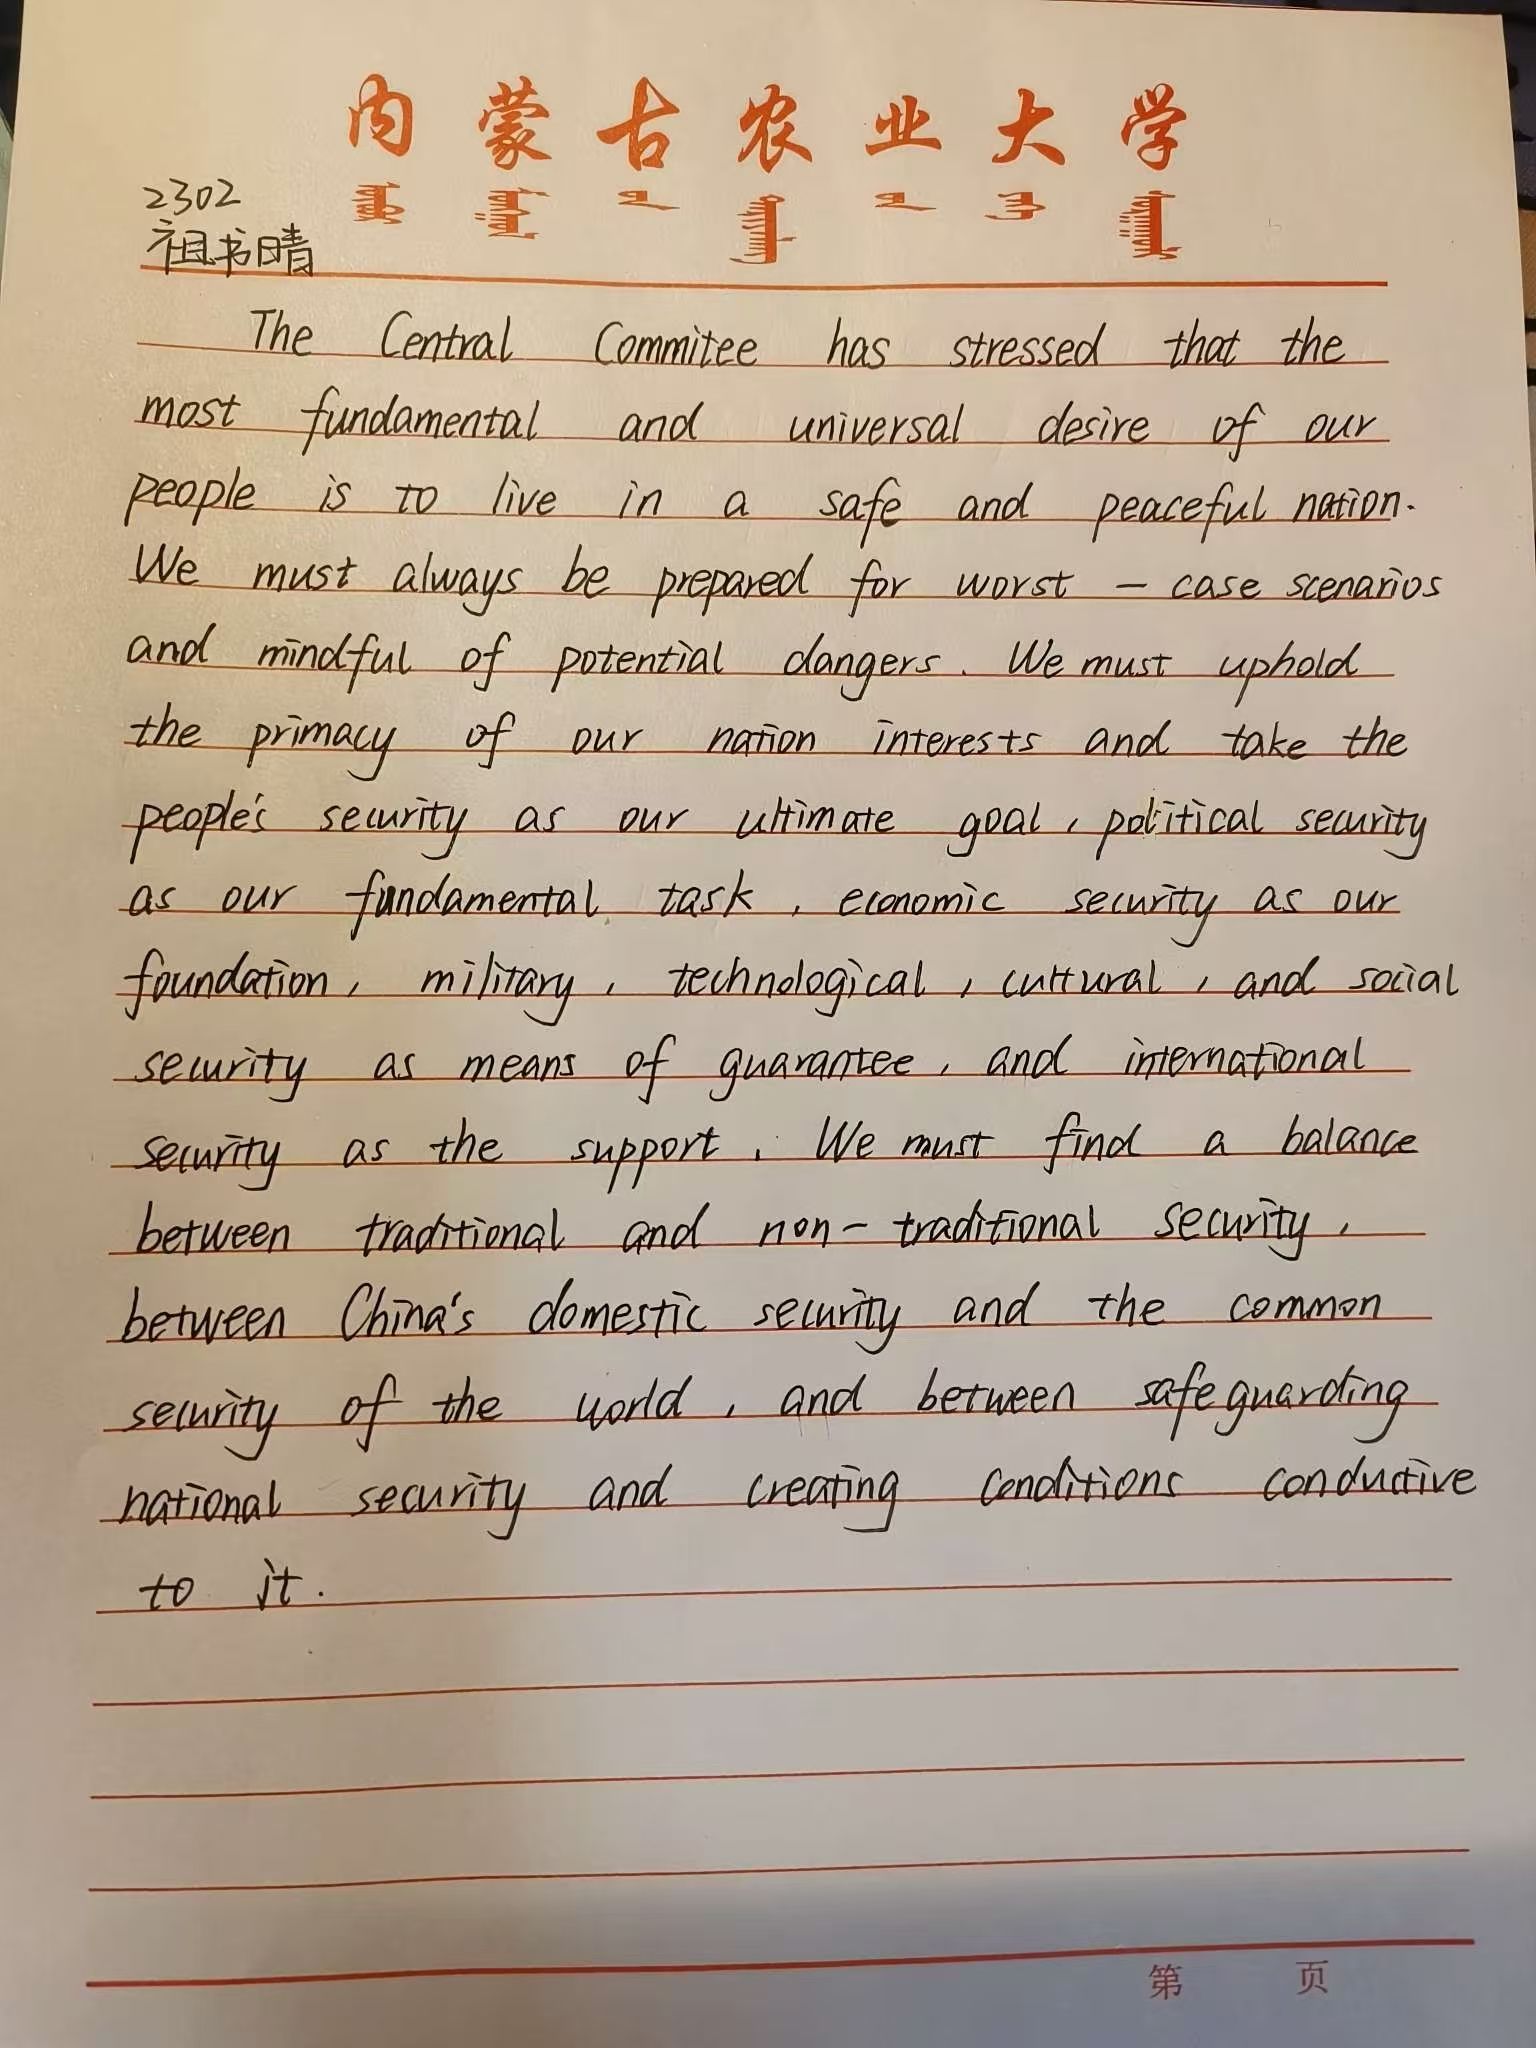 内蒙古农业大学
2302
祖书晴
The Central Commitee has stressed that the
most fundamental and universal desire of our
people is to live in a safe and peaceful nation.
We must always be prepared for worst - case scenarios
and mindful of potential dangers. We must uphold
the primacy of our nation interests and take the
people's security as our ultimate goal, political security
as our fundamental task, economic security as our
foundation, military, technological, cultural, and social
security as means of guarantee, and international
security as the support. We must find a balance
between traditional and non-traditional security,
between China's domestic security and the common
security of the world, and between safeguarding
national security and creating conditions conductive
to it.
第 页